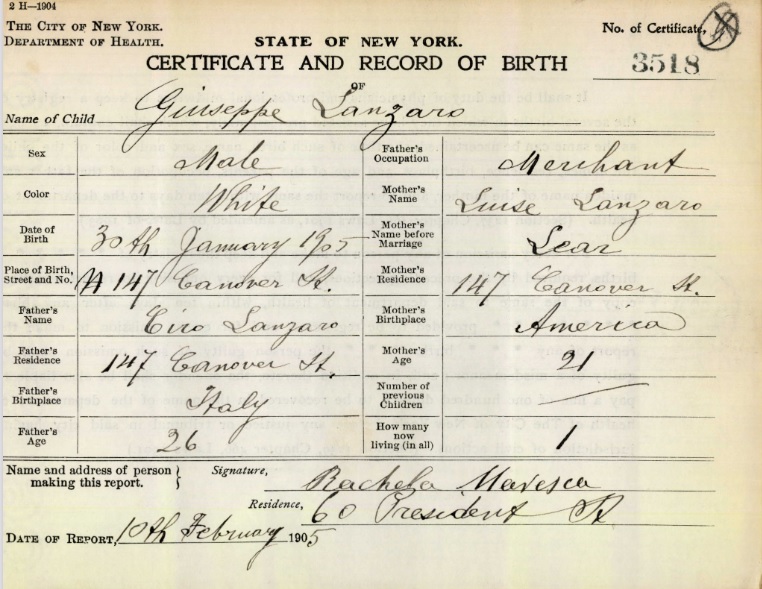 2 H—1904
THE CITY OF NEW YORK.
DEPARTMENT OF HEALTH.
STATE OF NEW YORK.
CERTIFICATE AND RECORD OF BIRTH
OF
No. of Certificate,
3518
Name of Child Giuseppe Lanzaro
Sex Male
Father's Occupation Merchant
Color White
Mother's Name Luise Lanzaro
Date of Birth 30th January 1905
Mother's Name before Marriage Lear
Place of Birth, Street and No. N 147 Canover St.
Mother's Residence 147 Canover St.
Father's Name Ciro Lanzaro
Mother's Birthplace America
Father's Residence 147 Canover St.
Mother's Age 21
Father's Birthplace Italy
Number of previous Children —
Father's Age 26
How many now living (in all) 1
Name and address of person making this report.
Signature, Rachela Maresca
Residence, 60 President St
DATE OF REPORT, 10th February 1905